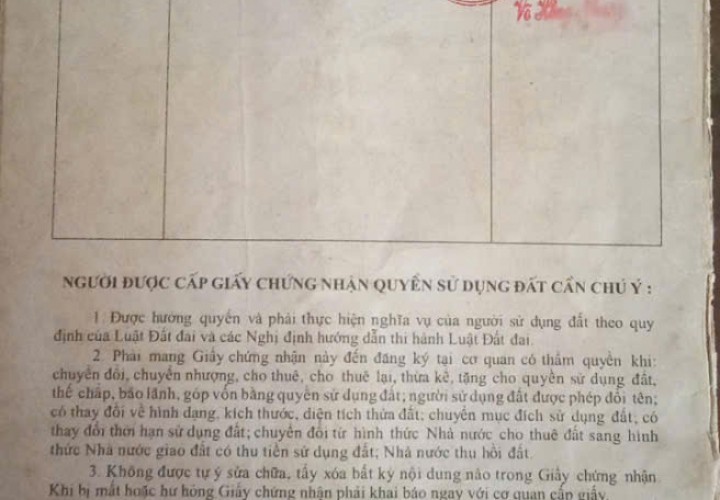 Võ
NGƯỜI ĐƯỢC CẤP GIẤY CHỨNG NHẬN QUYỀN SỬ DỤNG ĐẤT CẦN CHÚ Ý :
1. Được hưởng quyền và phải thực hiện nghĩa vụ của người sử dụng đất theo quy
định của Luật Đất đai và các Nghị định hướng dẫn thi hành Luật Đất đai.
2. Phải mang Giấy chứng nhận này đến đăng ký tại cơ quan có thẩm quyền khi:
chuyển đổi, chuyển nhượng, cho thuê, cho thuê lại, thừa kế, tặng cho quyền sử dụng đất,
thế chấp, bảo lãnh, góp vốn bằng quyền sử dụng đất; người sử dụng đất được phép đổi tên;
có thay đổi về hình dạng, kích thước, diện tích thửa đất; chuyển mục đích sử dụng đất; có
thay đổi thời hạn sử dụng đất; chuyển đổi từ hình thức Nhà nước cho thuê đất sang hình
thức Nhà nước giao đất có thu tiền sử dụng đất; Nhà nước thu hồi đất.
3. Không được tự ý sửa chữa, tẩy xóa bất kỳ nội dung nào trong Giấy chứng nhận
Khi bị mất hoặc hư hỏng Giấy chứng nhận phải khai báo ngay với cơ quan cấp giấy.